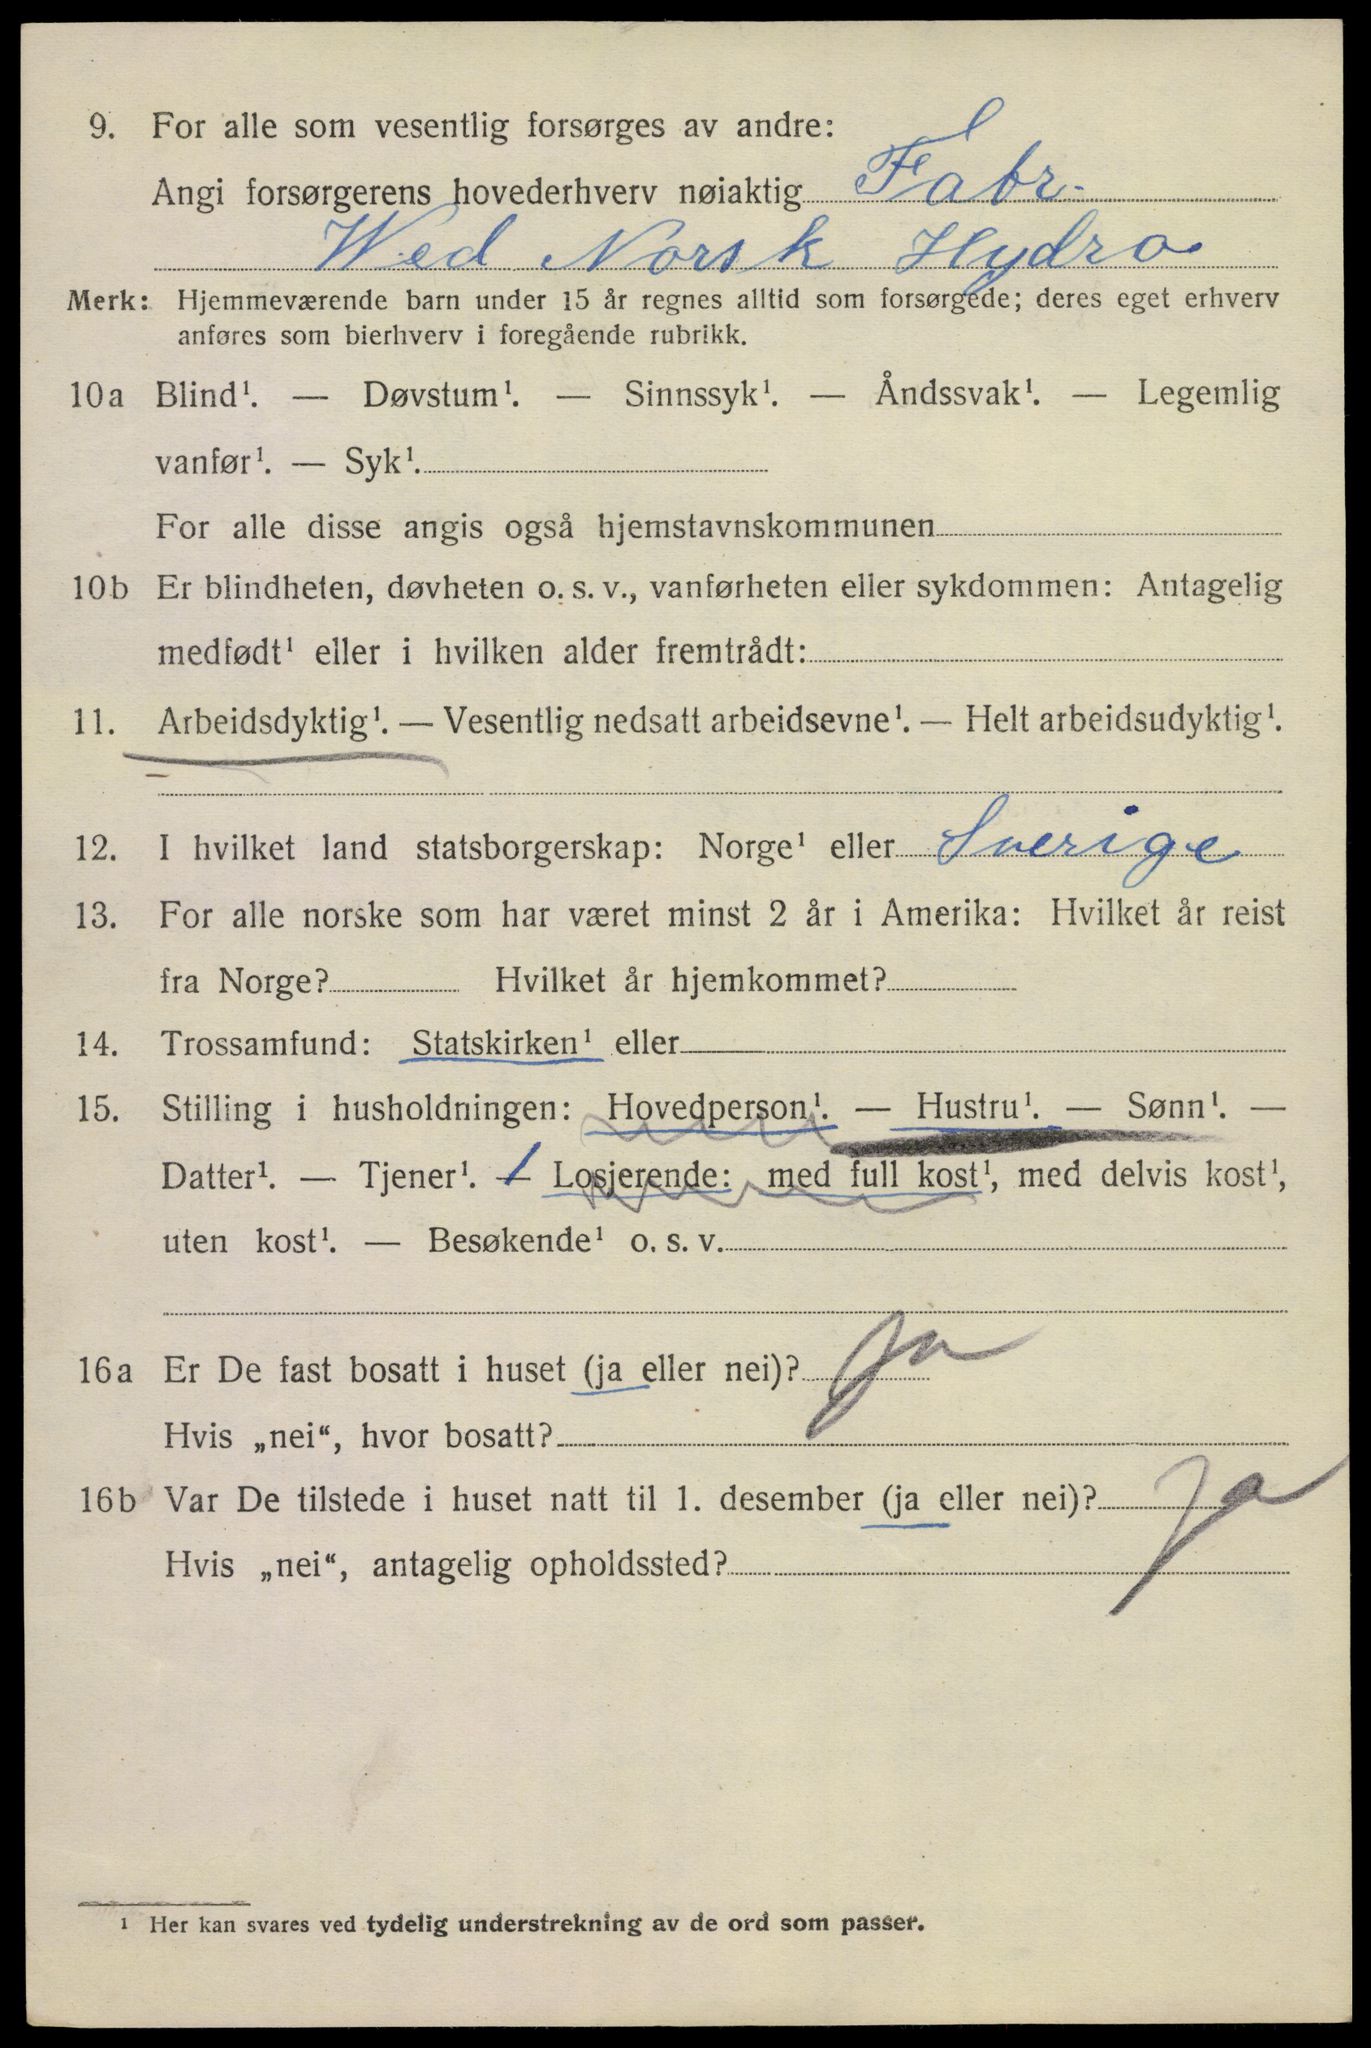 9. For alle som vesentlig forsørges av andre:
Angi forsørgerens hovederhverv nøiaktig Fabr.
Wed Norsk Hydro
Merk: Hjemmeværende barn under 15 år regnes alltid som forsørgede; deres eget erhverv
anføres som bierhverv i foregående rubrikk.
10a Blind¹. — Døvstum¹. — Sinnssyk¹. — Åndssvak¹. — Legemlig
vanfør¹. — Syk¹.
For alle disse angis også hjemstavnskommunen
10b Er blindheten, døvheten o. s. v., vanførheten eller sykdommen: Antagelig
medfødt¹ eller i hvilken alder fremtrådt:
11. Arbeidsdyktig¹. — Vesentlig nedsatt arbeidsevne¹. — Helt arbeidsudyktig¹.
12. I hvilket land statsborgerskap: Norge¹ eller Sverige
13. For alle norske som har været minst 2 år i Amerika: Hvilket år reist
fra Norge? Hvilket år hjemkommet?
14. Trossamfund: Statskirken¹ eller
15. Stilling i husholdningen: Hovedperson¹. — Hustru¹. — Sønn¹. —
Datter¹. — Tjener¹. — Losjerende: med full kost¹, med delvis kost¹,
uten kost¹. — Besøkende¹ o. s. v.
16a Er De fast bosatt i huset (ja eller nei)? ja
Hvis „nei“, hvor bosatt?
16b Var De tilstede i huset natt til 1. desember (ja eller nei)? ja
Hvis „nei“, antagelig opholdssted?
¹ Her kan svares ved tydelig understrekning av de ord som passer.